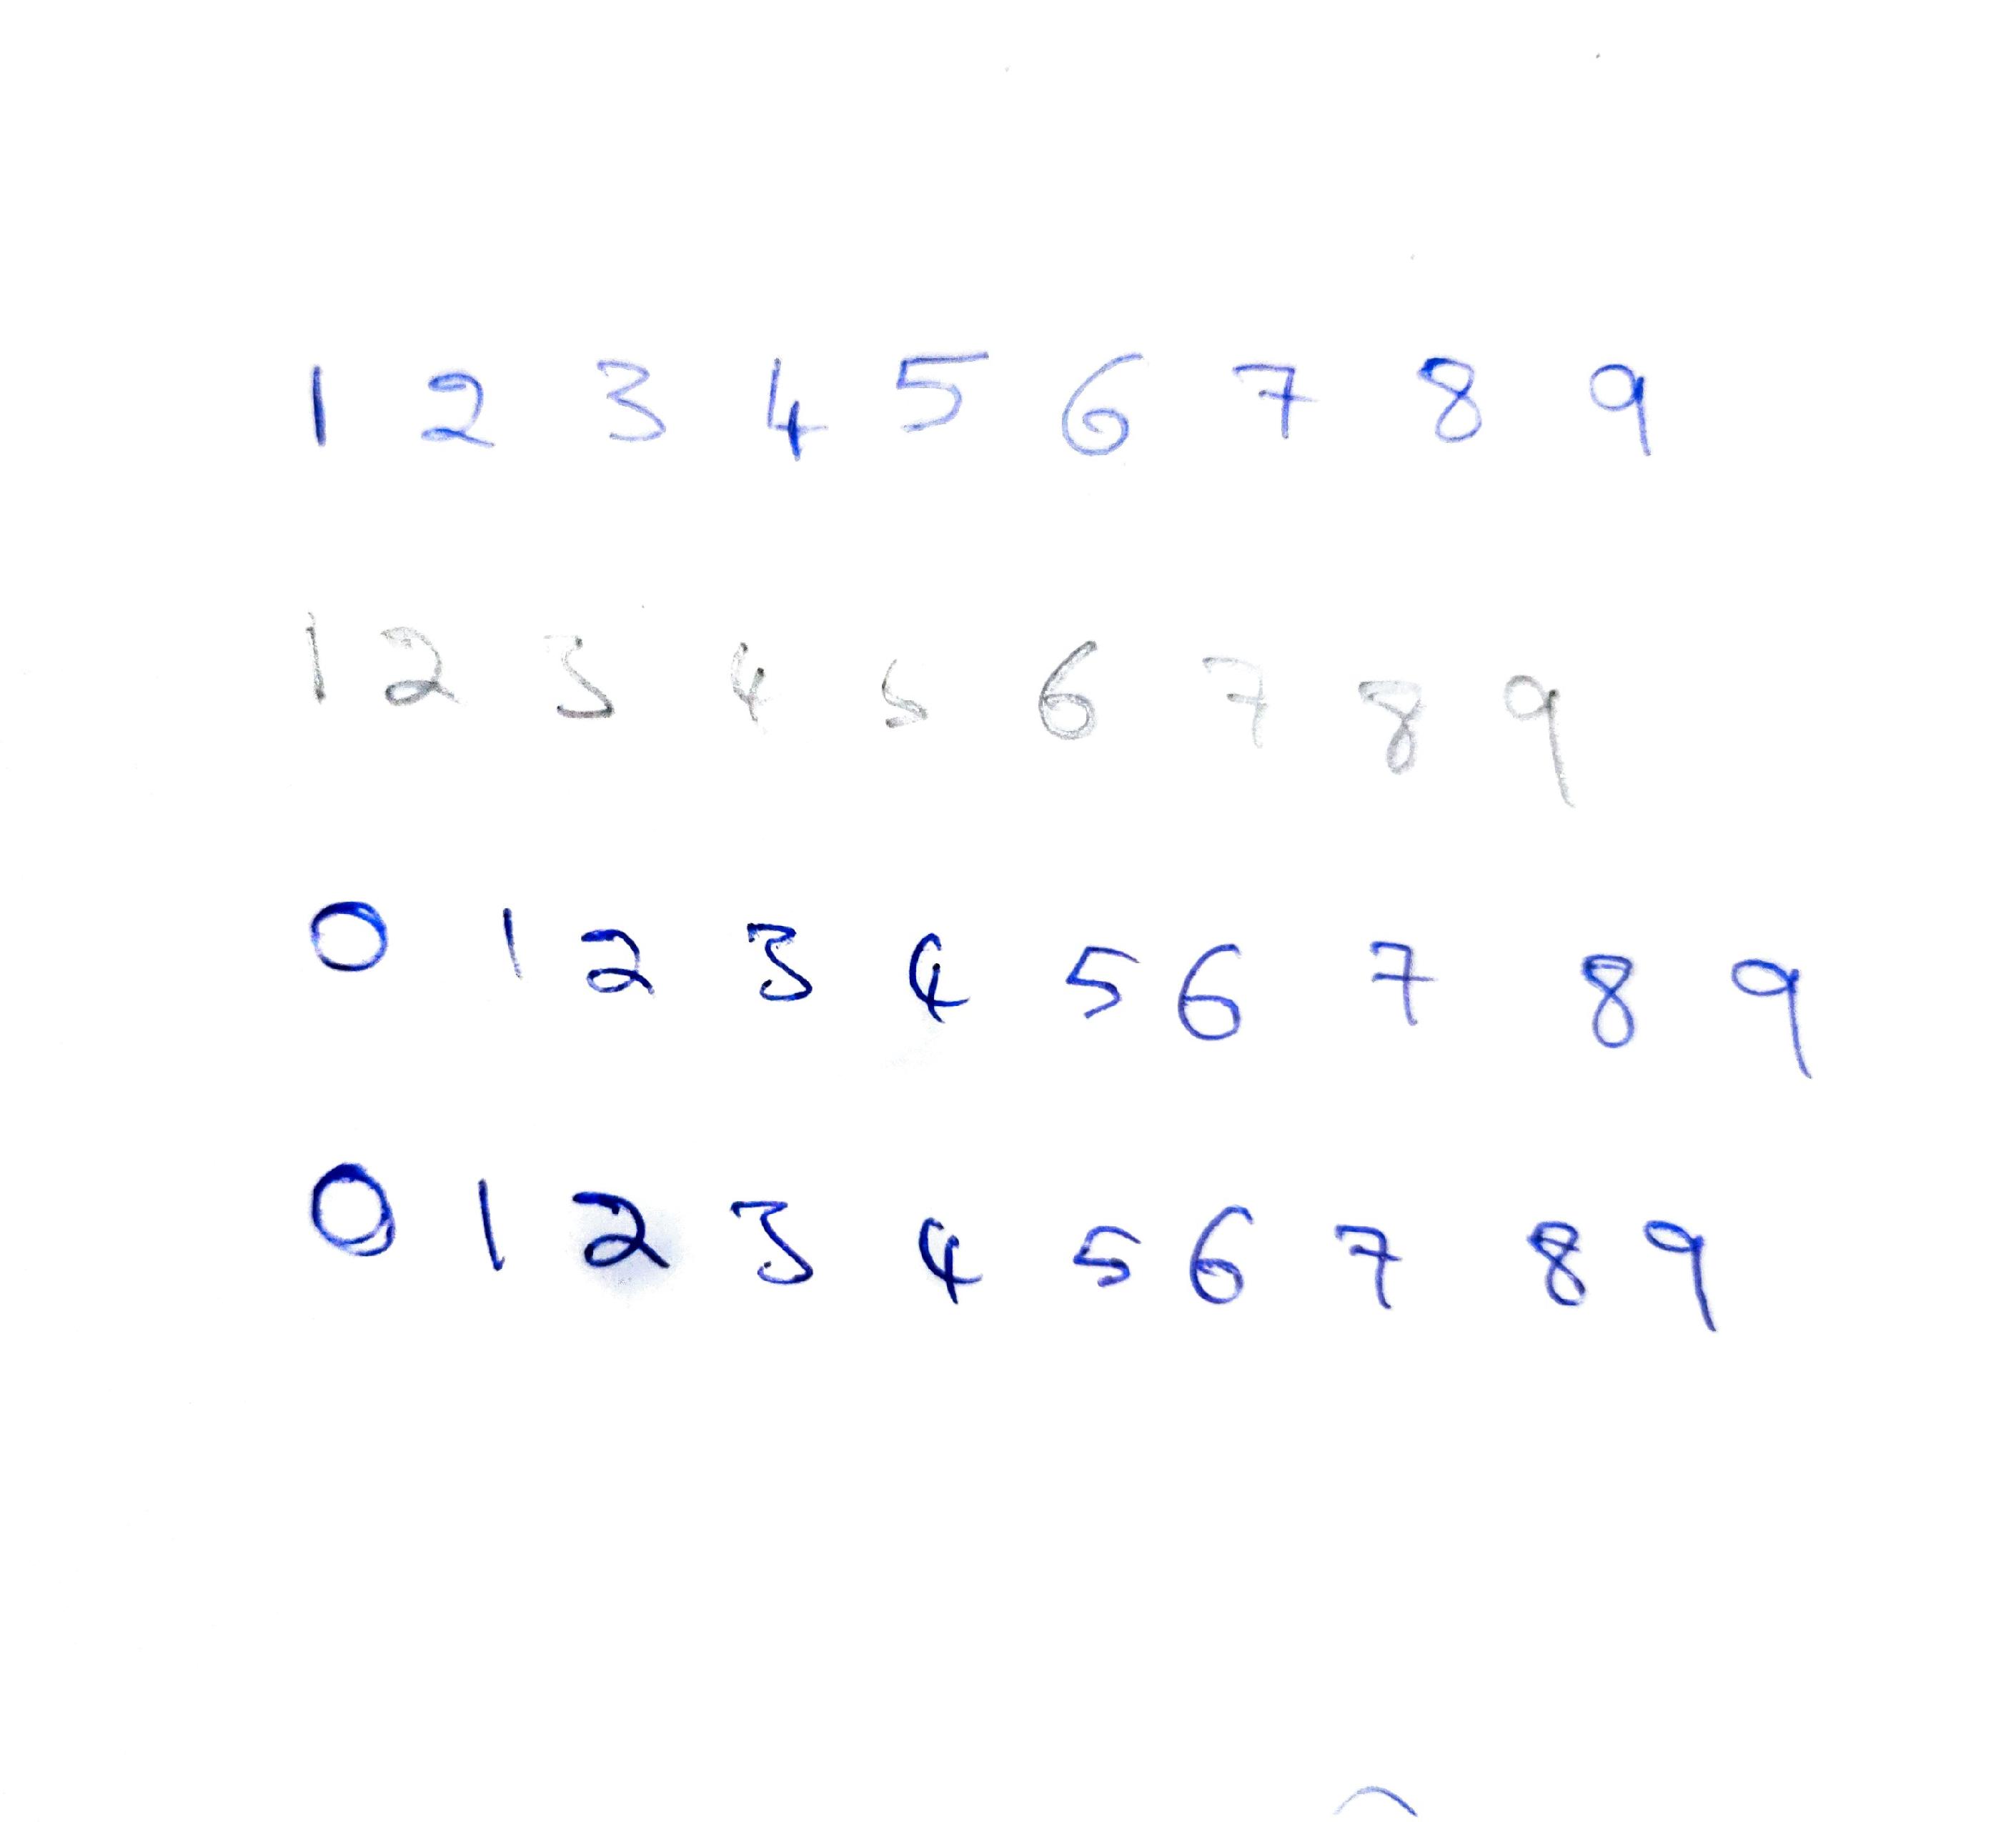 1 2 3 4 5 6 7 8 9
1 2 3 4 5 6 7 8 9
0 1 2 3 4 5 6 7 8 9
0 1 2 3 4 5 6 7 8 9